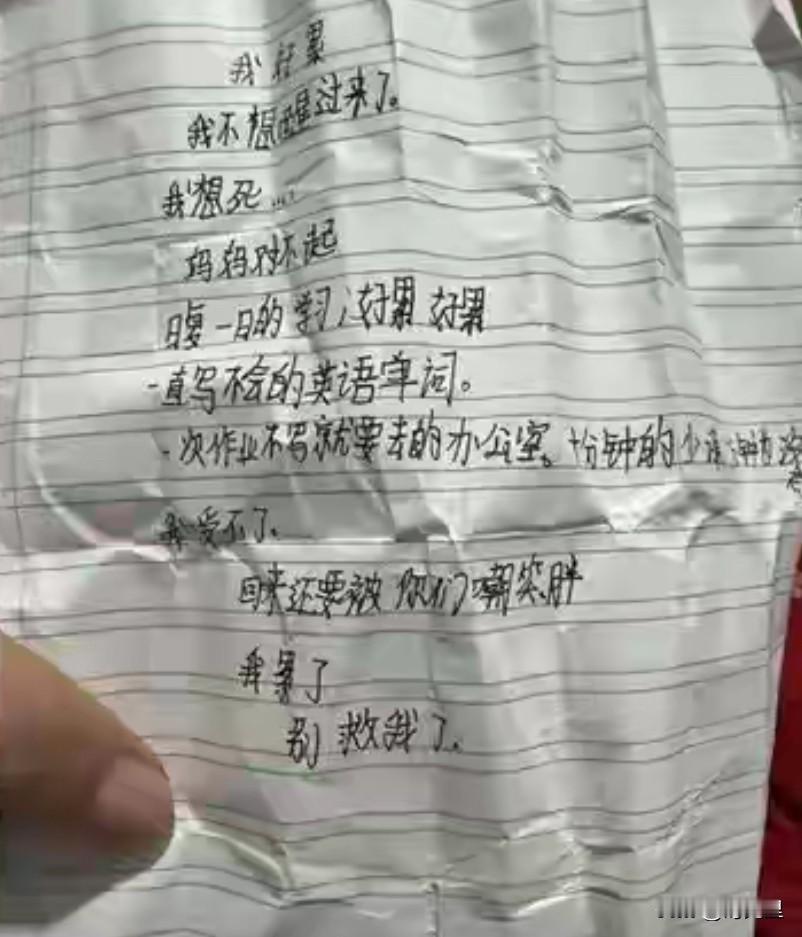 我好累
我不想醒过来了。
我想死...
妈妈对不起
日复一日的学习,好累 好累
一直写不会的英语单词。
一次作业不写就要去的办公室。十分钟的
我受不了。
回来还要被你们嘲笑胖
我累了
别救我了。